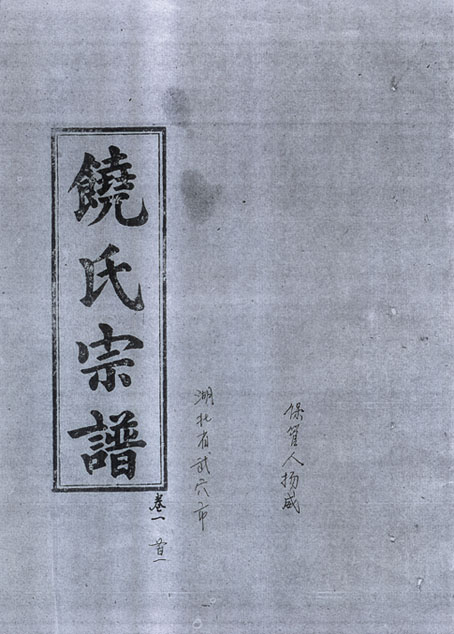 保管人扬威
湖北省武穴市
饒氏宗譜
卷一 首一